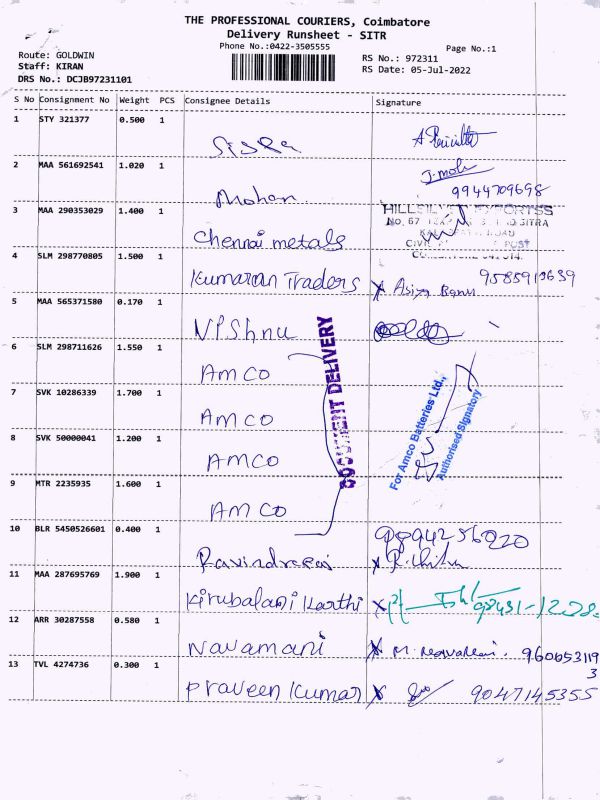 THE PROFESSIONAL COURIERS, Coimbatore
Delivery Runsheet - SITR
Phone No.:0422-3505555
Page No.:1
Route: GOLDWIN
Staff: KIRAN
DRS No.: DCJB97231101
RS No.: 972311
RS Date: 05-Jul-2022
S No Consignment No Weight PCS Consignee Details Signature
1 STY 321377 0.500 1
2 MAA 561692541 1.020 1 J. moh
Mohan 9944709698
3 MAA 290353029 1.400 1
Chennai metals
4 SLM 298770805 1.500 1
Kumaran Traders x Asiya Banu
5 MAA 565371580 0.170 1
VPShnu
6 SLM 298711626 1.550 1
AMCO
7 SVK 10286339 1.700 1
AMCO
8 SVK 50000041 1.200 1
AMCO
9 MTR 2235935 1.600 1
AMCO
DOCUMENT DELIVERY
For Amco Batteries Ltd.,
Authorised Signatory
10 BLR 5450526601 0.400 1 9894256020
11 MAA 287695769 1.900 1
Kirubalani Karthi
12 ARR 30287558 0.580 1
Navamani
13 TVL 4274736 0.300 1
Praveen Kumar x 9047145355